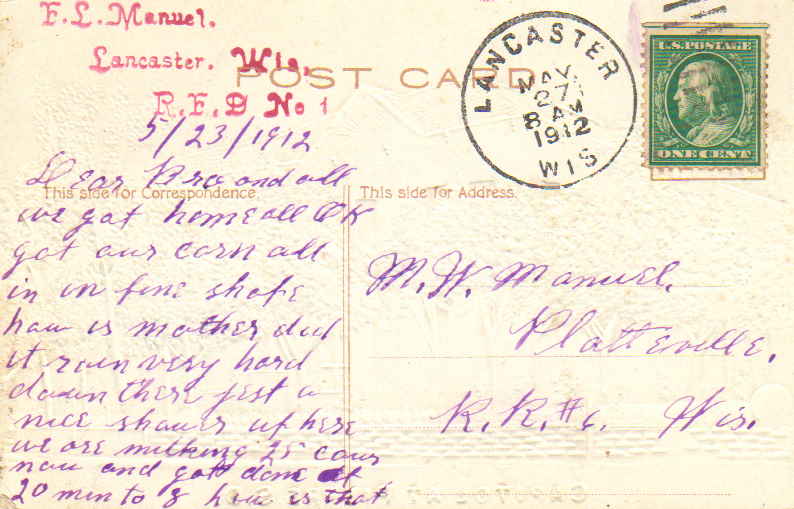 F. L. Manuel.
Lancaster. Wis.
R.F.D No 1
POST CARD
LANCASTER
MAY
27
8 AM
1912
WIS
U.S. POSTAGE
ONE CENT
5/23/1912
This side for Correspondence.
Dear Bro and all
we got home all OK
got our corn all
in in fine shape
how is mother did
it rain very hard
down there jest a
nice shower up here
we are milking 25 cows
now and got done at
20 min to 8 how is that
This side for Address.
M. W. Manuel.
Platteville.
R. R. #6. Wis.